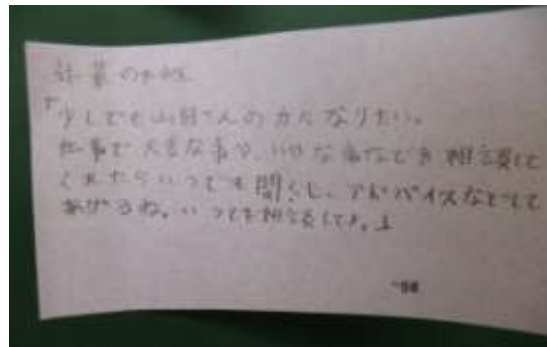 「少しでも山田さんの力になりたい。
仕事で大変な事や、いやな事などを相談して
くれたらいつでも聞くし、アドバイスなどして
あげるね。いつでも相談してね。」